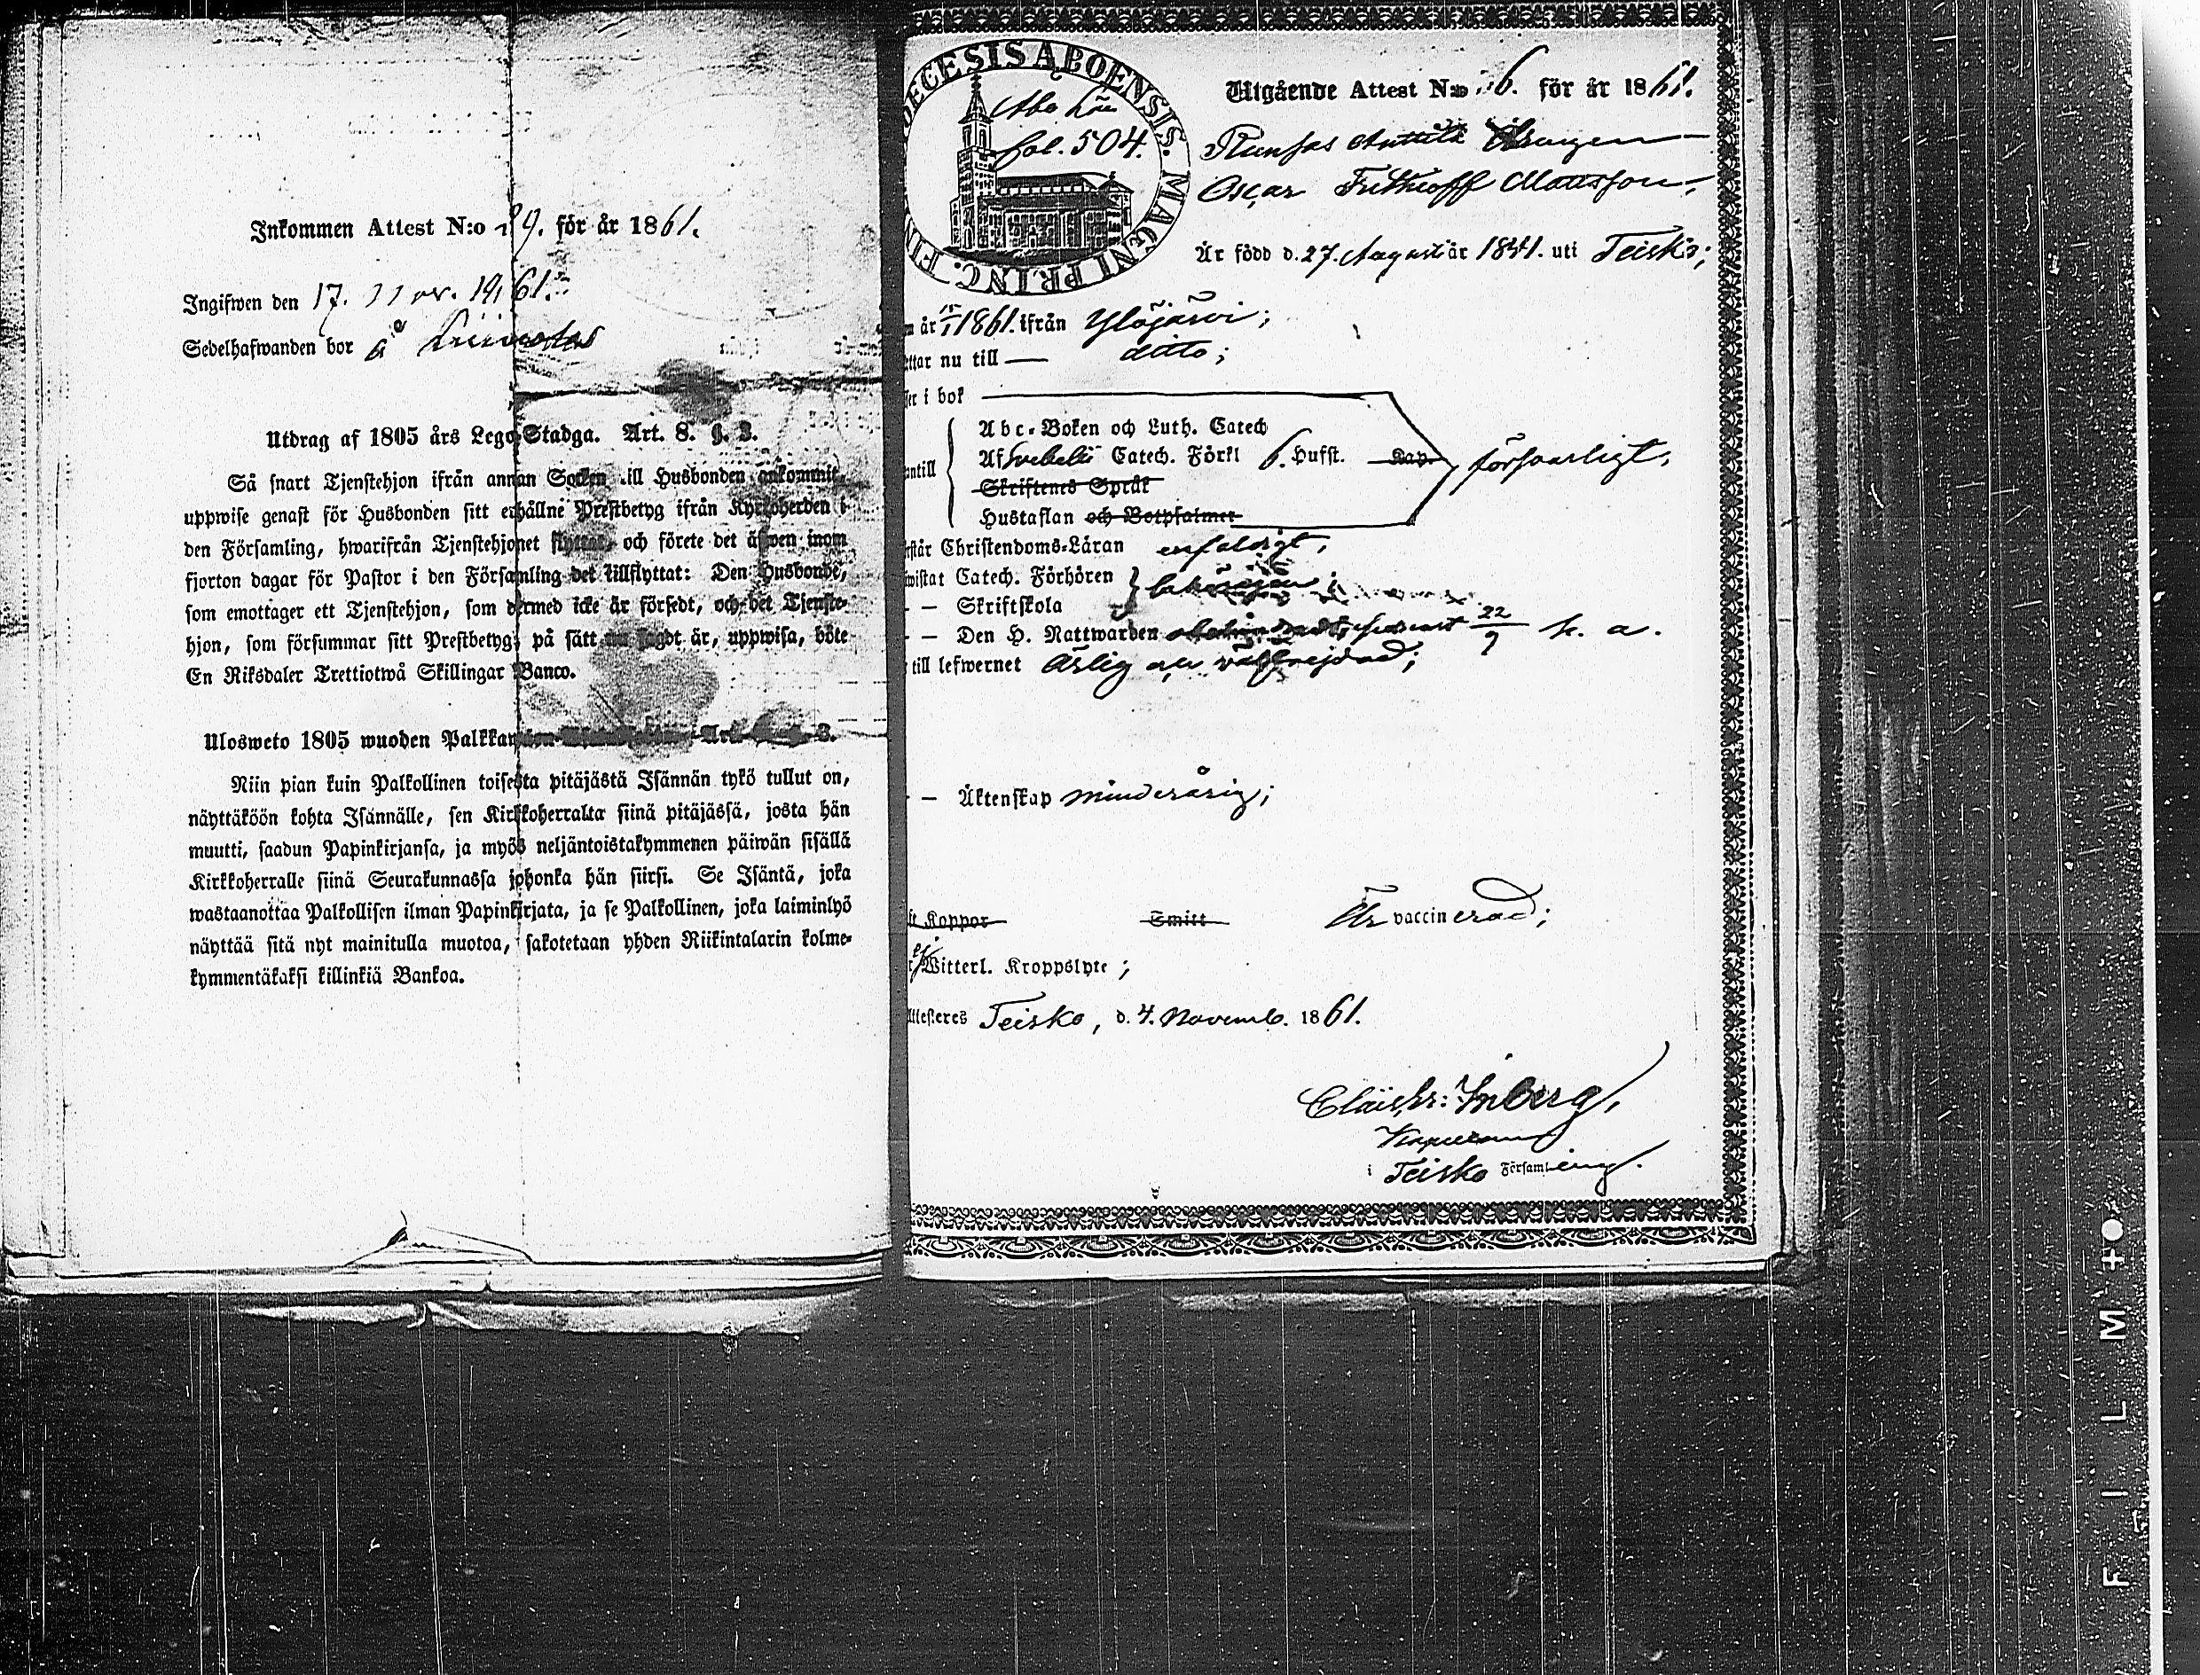 Inkommen Attest N:o 89. för år 1861.
Ingifwen den 17. Nov. 1861.
Sedelhafwanden bor å
Utdrag af 1805 års Lego-Stadga. Art. 8. §. 3.
Så snart Tjenstehjon ifrån annan Socken till Husbonden ankommit,
uppwise genast för Husbonden sitt erhållne Prestbetyg ifrån Kyrkoherden i
den Församling, hwarifrån Tjenstehjonet flyttat, och förete det äfwen inom
fjorton dagar för Pastor i den Församling det tillflyttat: Den Husbonde,
som emottager ett Tjenstehjon, som dermed icke är försedt, och det Tjenste-
hjon, som försummar sitt Prestbetyg, på sätt nu sagdt är, uppwisa, böte
En Riksdaler Trettiotwå Skillingar Banco.
Ulosweto 1805 wuoden 3.
Niin pian kuin Palkollinen toisesta pitäjästä Isännän tykö tullut on,
näyttäköön kohta Isännälle, sen Kirkkoherralta siinä pitäjässä, josta hän
muutti, saadun Papinkirjansa, ja myös neljäntoistakymmenen päiwän sisällä
Kirkkoherralle siinä Seurakunnassa johonka hän siirsi. Se Isäntä, joka
wastaanottaa Palkollisen ilman Papinkirjata, ja se Palkollinen, joka laiminlyö
näyttää sitä nyt mainitulla muotoa, sakotetaan yhden Riikintalarin kolme-
kymmentäkaksi killinkiä Bankoa.
DIOECESIS ABOENSIS. MAGNI PRINC. FIN
fol. 504.
Utgående Attest N:o 6. för år 1861.
Runsas Anttila Drengen
Oscar Frithioff Mattsson,
Är född d. 27. Augusti år 1841. uti Teisko;
år 1861. ifrån Ylöjärvi;
ttar nu till — ditto;
i bok
Abc-Boken och Luth. Catech
Af Svebelii Catech. Förkl 6. Hufst. Kap. försvarligt,
Skriftenes Språk
Hustaflan och Botpsalmer
står Christendoms-Läran enfaldigt,
wistat Catech. Förhören
— — Skriftskola
— — Den H. Nattwarden 22/9 h. a.
till lefwernet Ärlig och välfrejdad;
— — Äktenskap minderårig;
Koppor Smitt Är vaccinerad;
ej Witterl. Kroppslyte;
Attesteres Teisko, d. 4. Novemb. 1861.
Inberg,
Kapellan
i Teisko Församling.
FILM